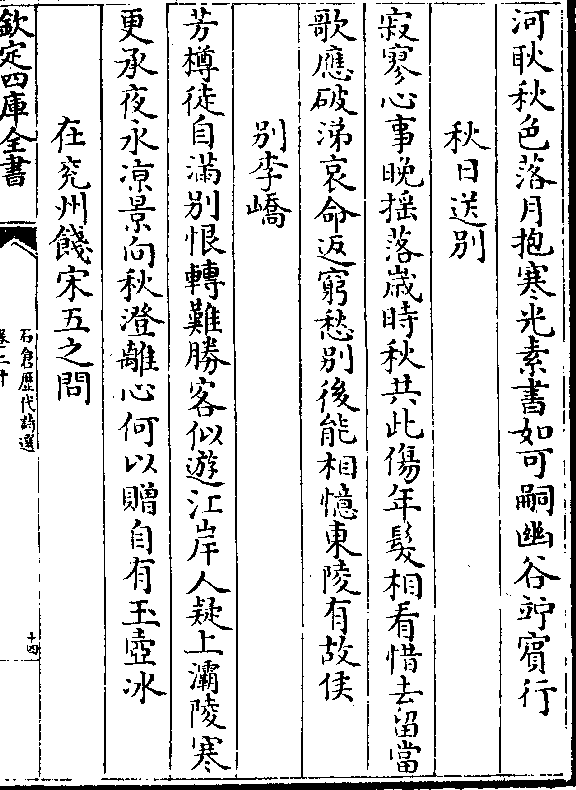 河耿秋色落月抱寒光素書如可嗣幽谷竚賔行
秋日送别
寂寥心事晩揺落歳時秋共此傷年髮相看惜去留當
歌應破涕哀命返窮愁别後能相憶東陵有故侯
别李嶠
芳樽徒自滿别恨轉難勝客似遊江岸人疑上灞陵寒
更承夜永凉景向秋澄離心何以贈自有玉壺冰
在兖州餞宋五之問
欽定四庫全書
石倉歴代詩選
卷二十
十四